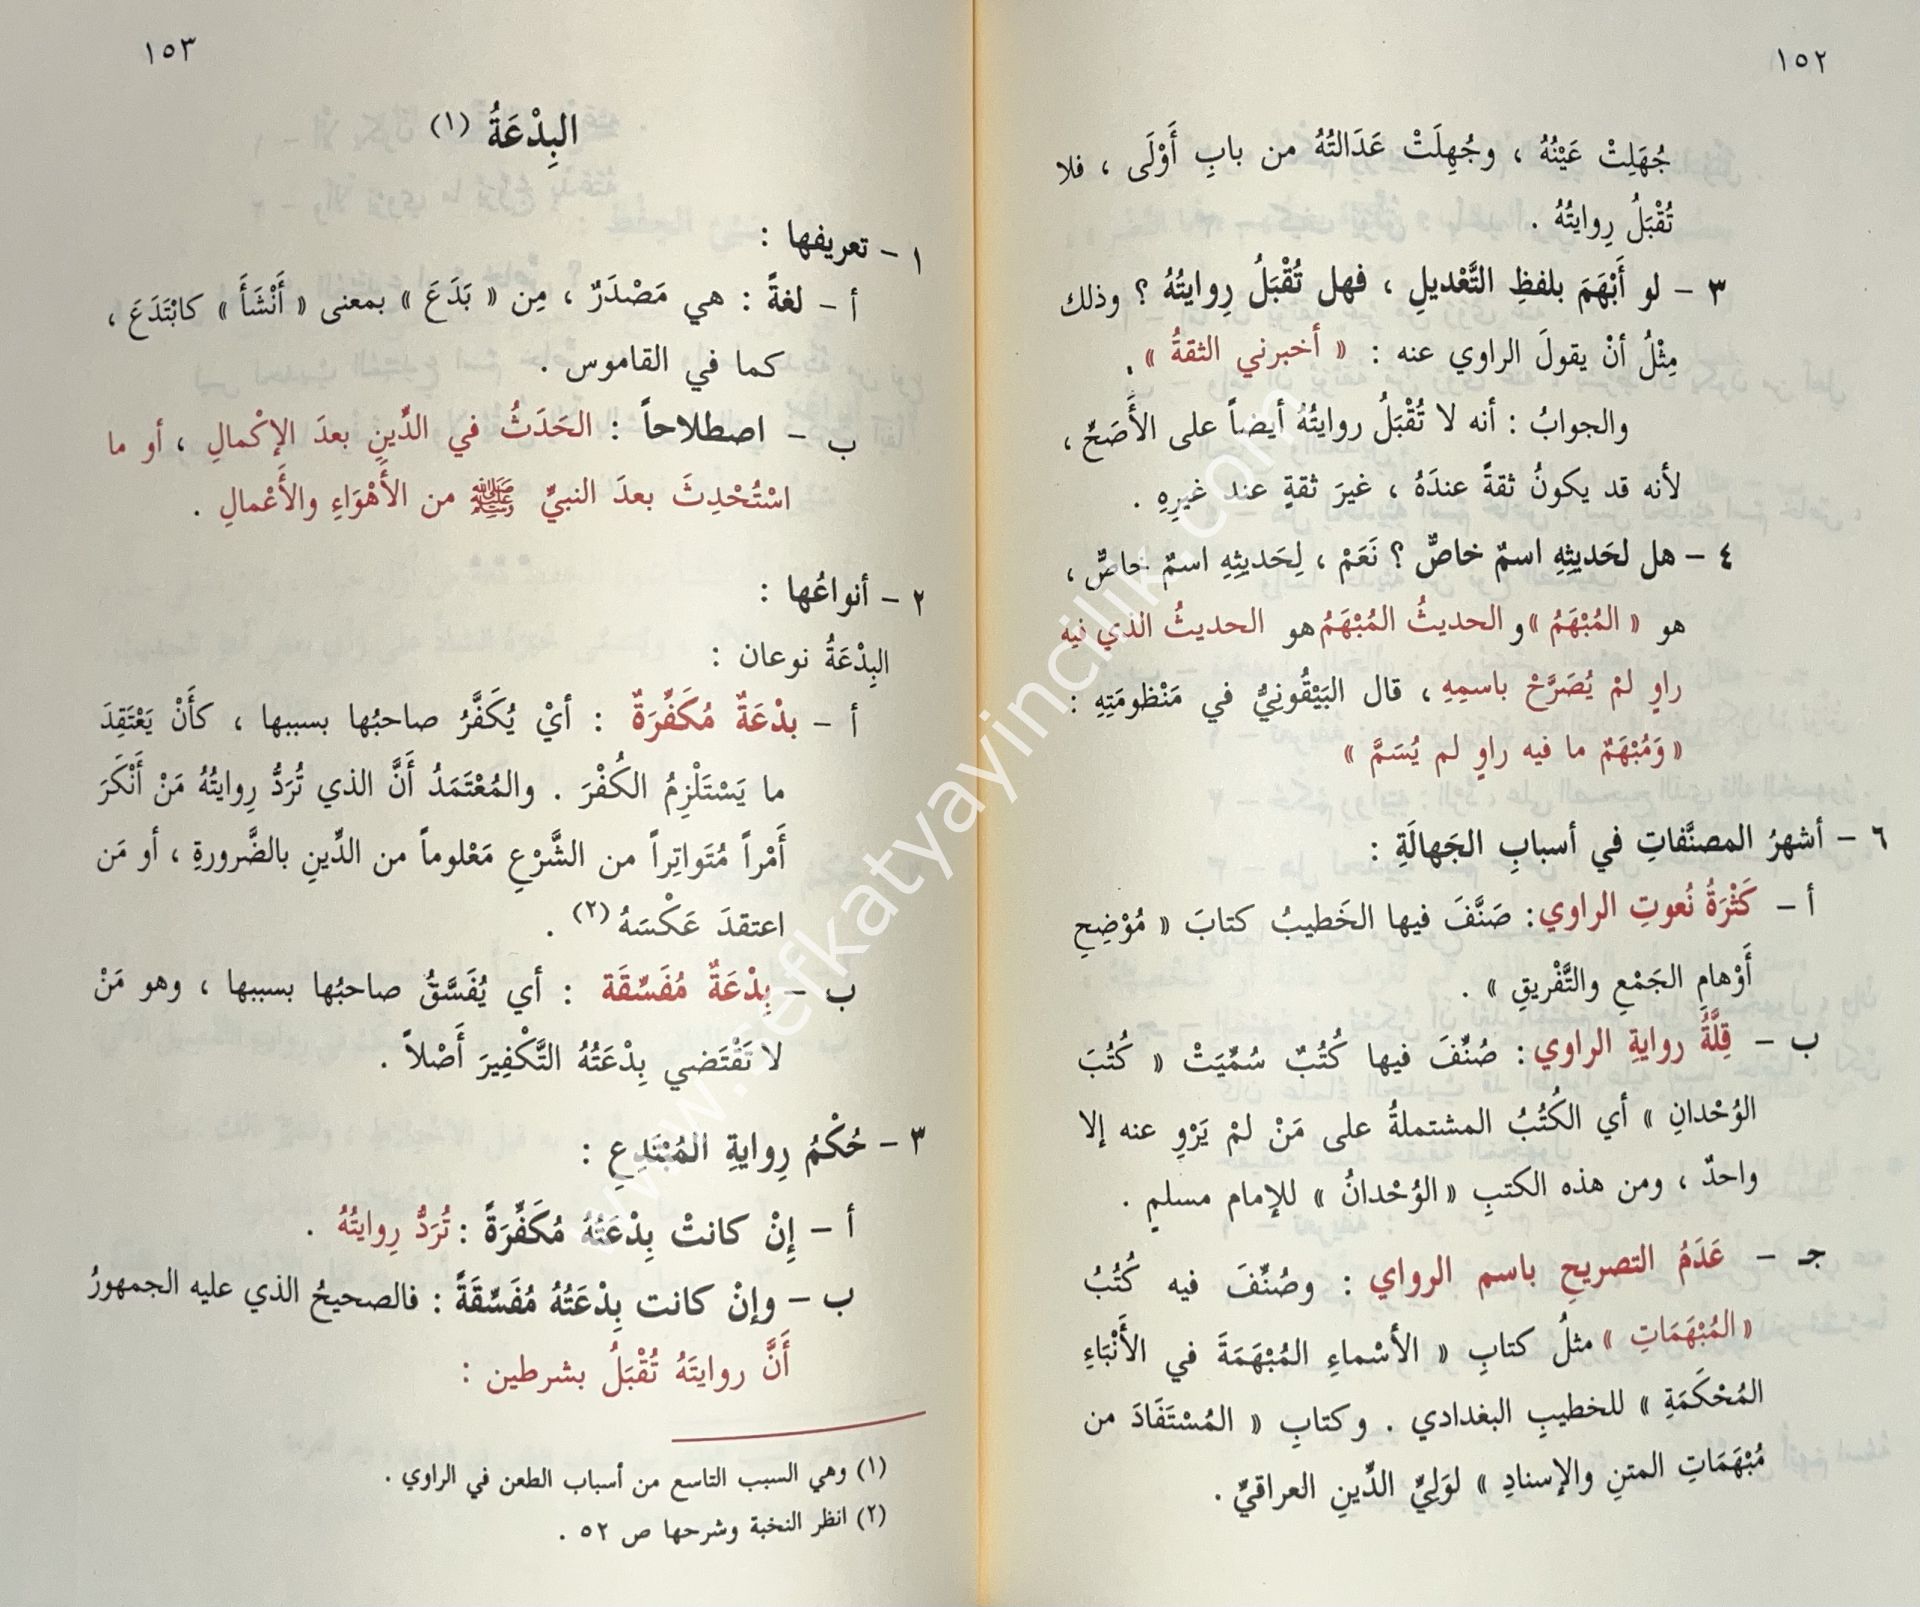 ١٥٢
جُهَلِتْ عَيْنُهُ ، وجُهِلَتْ عَدَالتُهُ من بابِ أَوْلَى ، فلا
تُقْبَلُ رِوايتُهُ .
٣ - لو أَبْهَمَ بلفظِ التَّعْديلِ ، فهل تُقْبَلُ رِوايتُهُ ؟ وذلك
مِثْلُ أنْ يقولَ الراوي عنه : « أخبرني الثقةُ » .
والجوابُ : أنه لا تُقْبَلُ روايتُهُ أيضاً على الأَصَحِّ ،
لأنه قد يكونُ ثقةً عندَهُ ، غيرَ ثقةٍ عند غيرِهِ .
٤ - هل لحَديثِهِ اسمٌ خاصٌّ ؟ نَعَمْ ، لِحَديثِهِ اسمٌ خاصٌّ ،
هو « المُبْهَمُ » و الحديثُ المُبْهَمُ هو الحديثُ الذي فيه
راوٍ لمْ يُصَرَّحْ باسمِهِ ، قال البَيْقُونِيُّ في مَنْظومَتِهِ :
« وَمُبْهَمٌ ما فيه راوٍ لم يُسَمَّ »
٦ - أشهرُ المصنَّفاتِ في أسبابِ الجَهالَةِ :
أ - كَثْرَةُ نُعوتِ الراوي : صَنَّفَ فيها الخَطيبُ كتابَ « مُوْضِحِ
أَوْهامِ الجَمْعِ والتَّفْريقِ » .
ب - قِلَّةُ روايةِ الراوي : صُنِّفَ فيها كُتُبٌ سُمِّيَتْ « كُتُبَ
الوُحْدانِ » أي الكُتُبُ المشتملةُ على مَنْ لمْ يَرْوِ عنه إلا
واحدٌ ، ومن هذه الكتبِ « الوُحْدانُ » للإمام مسلمٍ .
جـ - عَدَمُ التصريحِ باسم الرواي : وصُنِّفَ فيه كُتُبُ
« المُبْهَمَاتِ » مثلُ كتابِ « الأسْماءِ المُبْهَمَةَ في الأَنْبَاءِ
المُحْكَمَةِ » للخطيبِ البغدادي . وكتابِ « المُسْتَفَادَ من
مُبْهَمَاتِ المتنِ والإسنادِ » لوَلِيِّ الدِّينِ العراقيِّ .
١٥٣
البِدْعَةُ (١)
١ - تعريفها :
أ - لغةً : هي مَصْدَرٌ ، مِن « بَدَعَ » بمعنى « أَنْشَأَ » كابْتَدَعَ ،
كما في القاموس .
ب - اصطلاحاً : الحَدَثُ في الدِّينِ بعدَ الإكْمالِ ، أو ما
اسْتُحْدِثَ بعدَ النبيِّ ﷺ من الأَهْوَاءِ والأَعْمالِ .
٢ - أنواعُها :
البِدْعَةُ نوعان :
أ - بدْعَةٌ مُكَفِّرَةٌ : أيْ يُكَفَّرُ صاحبُها بسببها ، كأَنْ يَعْتَقِدَ
ما يَسْتَلْزِمُ الكُفْرَ . والمُعْتَمَدُ أَنَّ الذي تُرَدُّ رِوايتُهُ مَنْ أَنْكَرَ
أَمْراً مُتَواتِراً من الشَّرْعِ مَعْلوماً من الدِّينِ بالضَّرورةِ ، أو مَن
اعتقدَ عَكْسَهُ (٢) .
ب - بِدْعَةٌ مُفَسِّقَة : أي يُفَسَّقُ صاحبُها بسببها ، وهو مَنْ
لا تَقْتَضي بِدْعَتُهُ التَّكْفِيرَ أَصْلاً .
٣ - حُكْمُ رِوايةِ المُبْتَدِعِ :
أ - إِنْ كانتْ بِدْعَتُهُ مُكَفِّرَةً : تُرَدُّ رِوايتُهُ .
ب - وإنْ كانت بِدْعَتُهُ مُفَسِّقَةً : فالصحيحُ الذي عليه الجمهورُ
أَنَّ روايتَهُ تُقْبَلُ بشرطين :
(١) وهي السبب التاسع من أسباب الطعن في الراوي .
(٢) انظر النخبة وشرحها ص ٥٢ .
www.sefkatyayincilik.com